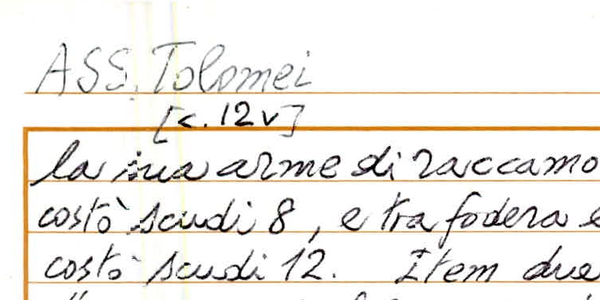 ASS. Tolomei
[c. 12 v]
la sua arme di raccamo
costò scudi 8, e tra fodera e
costò scudi 12. Item due